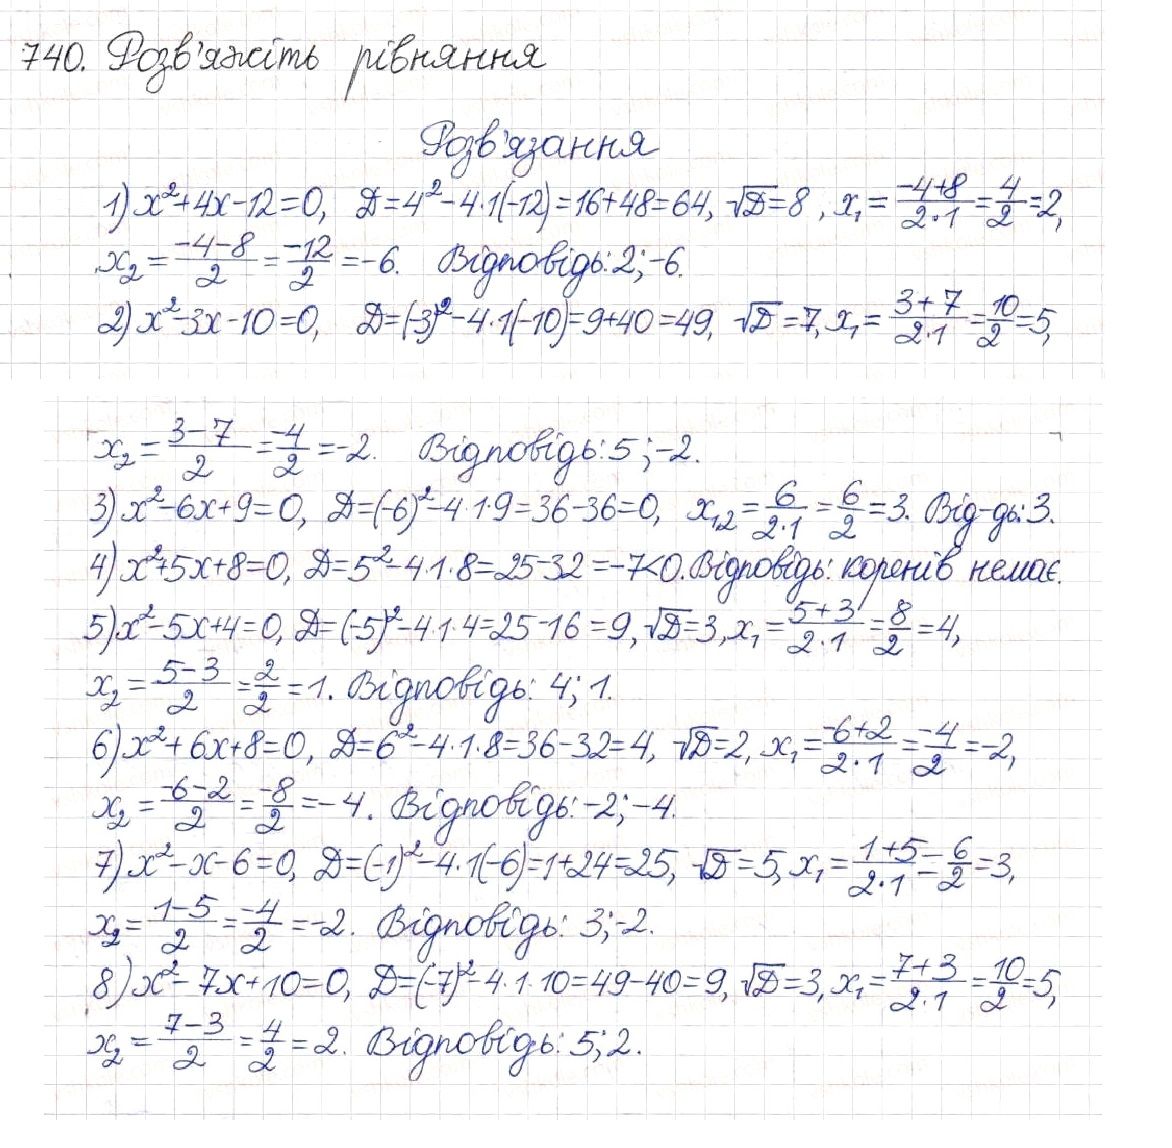 740. Розв'яжіть рівняння
Розв'язання
1) x²+4x-12=0, D=4²-4·1(-12)=16+48=64, √D=8, x₁=(-4+8)/(2·1)=4/2=2,
x₂=(-4-8)/2=-12/2=-6. Відповідь: 2;-6.
2) x²-3x-10=0, D=(-3)²-4·1(-10)=9+40=49, √D=7, x₁=(3+7)/(2·1)=10/2=5,
x₂=(3-7)/2=-4/2=-2. Відповідь: 5;-2.
3) x²-6x+9=0, D=(-6)²-4·1·9=36-36=0, x₁,₂=6/(2·1)=6/2=3. Від-дь: 3.
4) x²+5x+8=0, D=5²-4·1·8=25-32=-7<0. Відповідь: коренів немає.
5) x²-5x+4=0, D=(-5)²-4·1·4=25-16=9, √D=3, x₁=(5+3)/(2·1)=8/2=4,
x₂=(5-3)/2=2/2=1. Відповідь: 4; 1.
6) x²+6x+8=0, D=6²-4·1·8=36-32=4, √D=2, x₁=(-6+2)/(2·1)=-4/2=-2,
x₂=(-6-2)/2=-8/2=-4. Відповідь: -2;-4.
7) x²-x-6=0, D=(-1)²-4·1(-6)=1+24=25, √D=5, x₁=(1+5)/(2·1)=6/2=3,
x₂=(1-5)/2=-4/2=-2. Відповідь: 3;-2.
8) x²-7x+10=0, D=(-7)²-4·1·10=49-40=9, √D=3, x₁=(7+3)/(2·1)=10/2=5,
x₂=(7-3)/2=4/2=2. Відповідь: 5; 2.